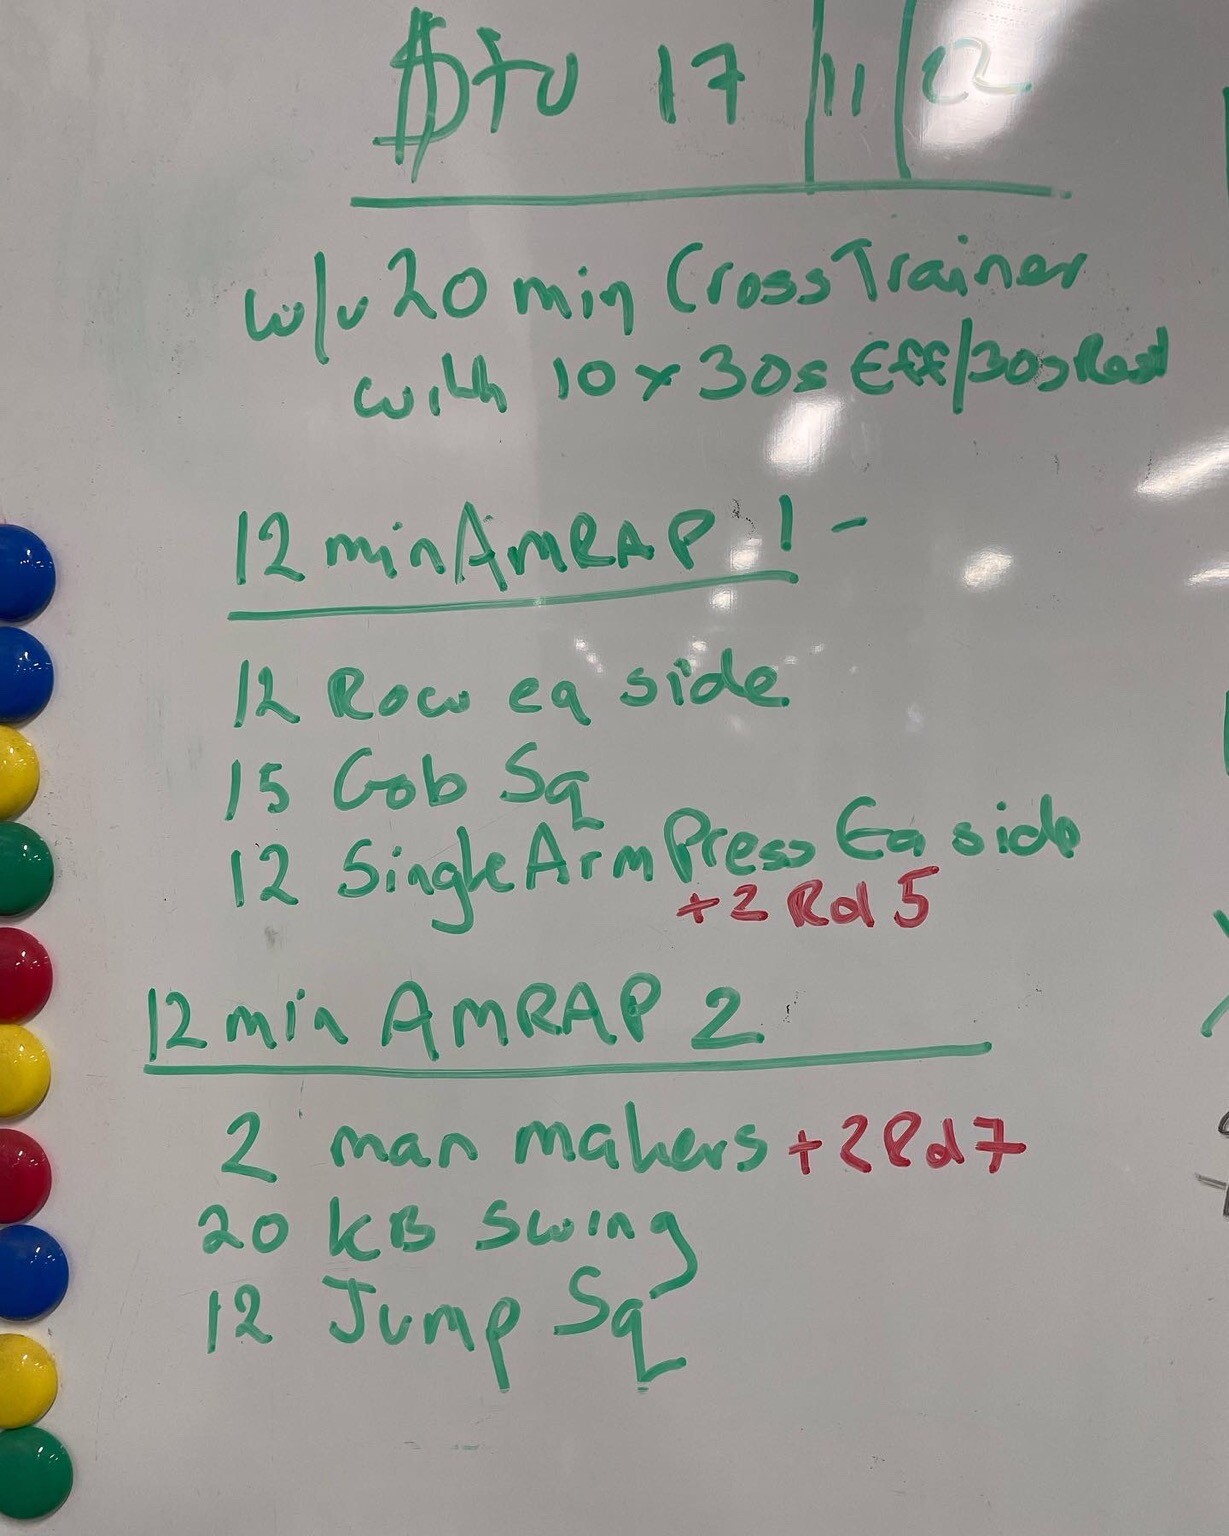 Stu 17/11/22
w/u 20 min Cross Trainer
with 10 x 30s Eff/30s Rest
12 min AMRAP 1 -
12 Row ea side
15 Gob Sq
12 Single Arm Press Ea side
+2 Rd 5
12 min AMRAP 2
2 man makers +2 Rd 7
20 KB swing
12 Jump Sq